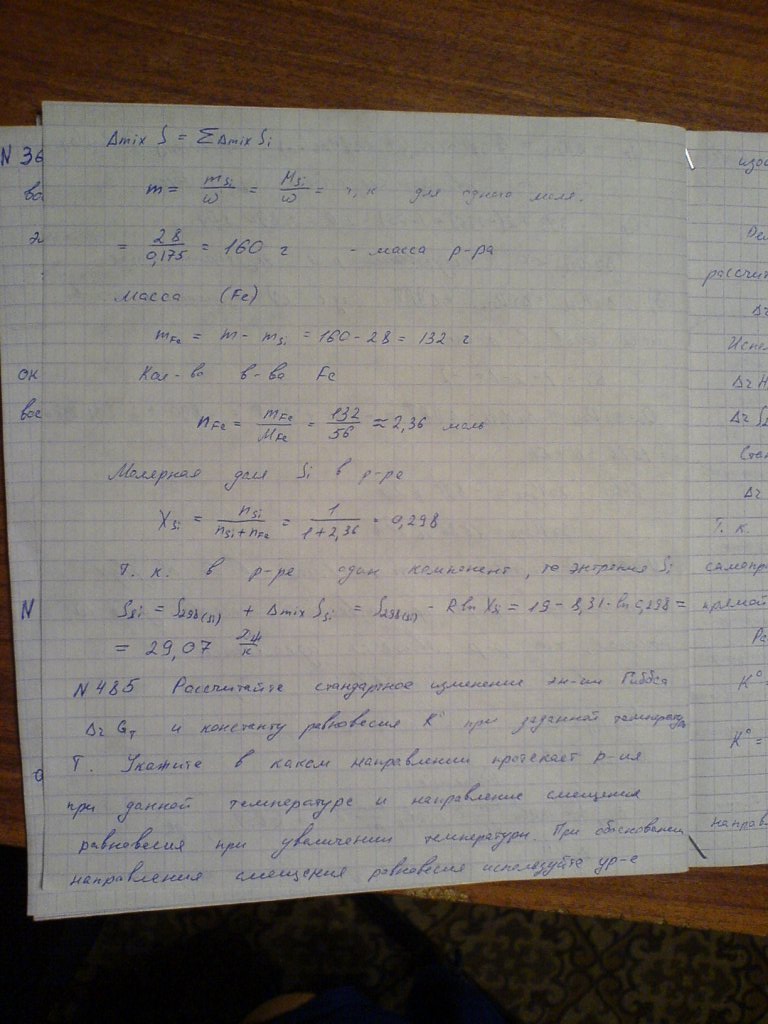 Δmix S = Σ Δmix Si
m = mSi/ω = MSi/ω = т.к для одного моля.
= 28/0,175 = 160 г - масса р-ра
Масса (Fe)
mFe = m - mSi = 160 - 28 = 132 г
Кол-во в-ва Fe
nFe = mFe/MFe = 132/56 ≈ 2,36 моль
Молярная доля Si в р-ре
XSi = nSi/(nSi+nFe) = 1/(1+2,36) = 0,298
Т. к. в р-ре один компонент, то энтропия Si
SSi = S298(Si) + Δmix SSi = S298(Si) - R ln XSi = 19 - 8,31·ln 0,298 =
= 29,07 Дж/К
N 485 Рассчитайте стандартное изменение эн-ии Гиббса
ΔrGT и константу равновесия K° при заданной температуре
T. Укажите в каком направлении протекает р-ия
при данной температуре и направление смещения
равновесия при увеличении температуры. При обосновании
направления смещения равновесия используйте ур-е
N 36
во
ок
вос
N
изо
рассчит
Δr
Испо
ΔrH
ΔrS
Стан
Δr
Т. к.
самопр
прямой
Ра
K° =
K° =
направл